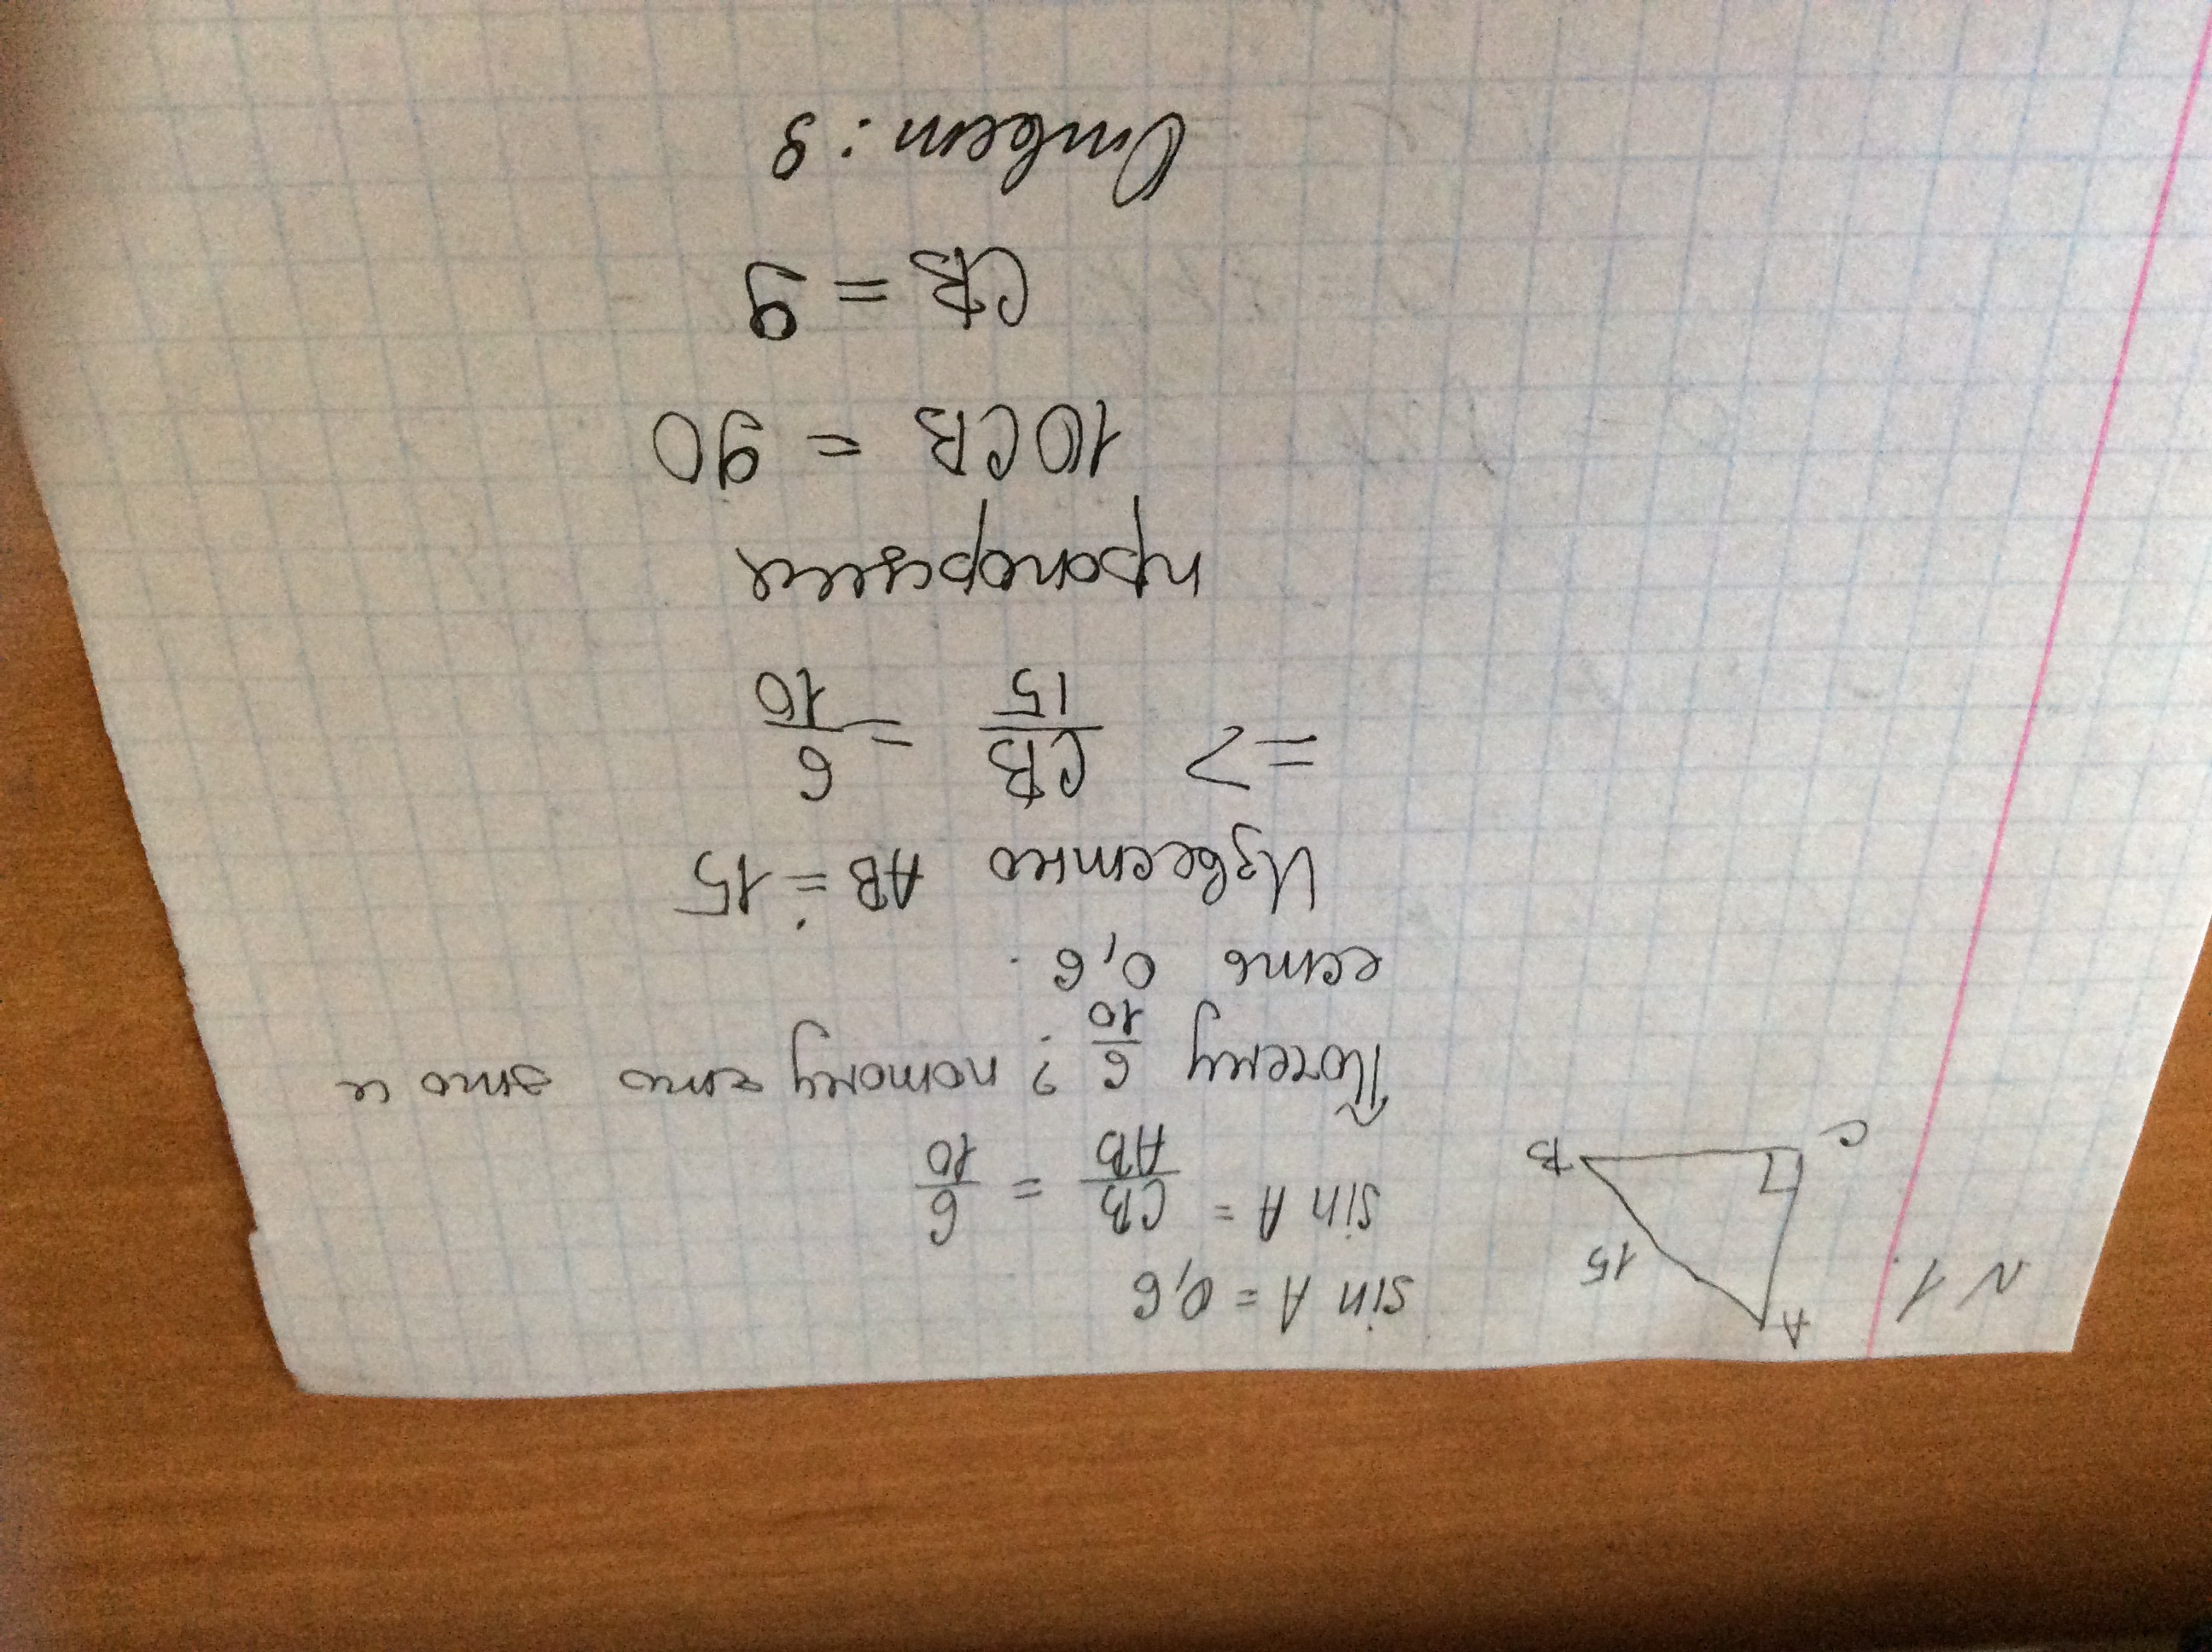 N 1.
A
15
C
B
sin A = 0,6
sin A = CB/AB = 6/10
Почему 6/10? потому что это и
есть 0,6.
Известно AB = 15
=> CB/15 = 6/10
пропорция
10CB = 90
CB = 9
Ответ: 8